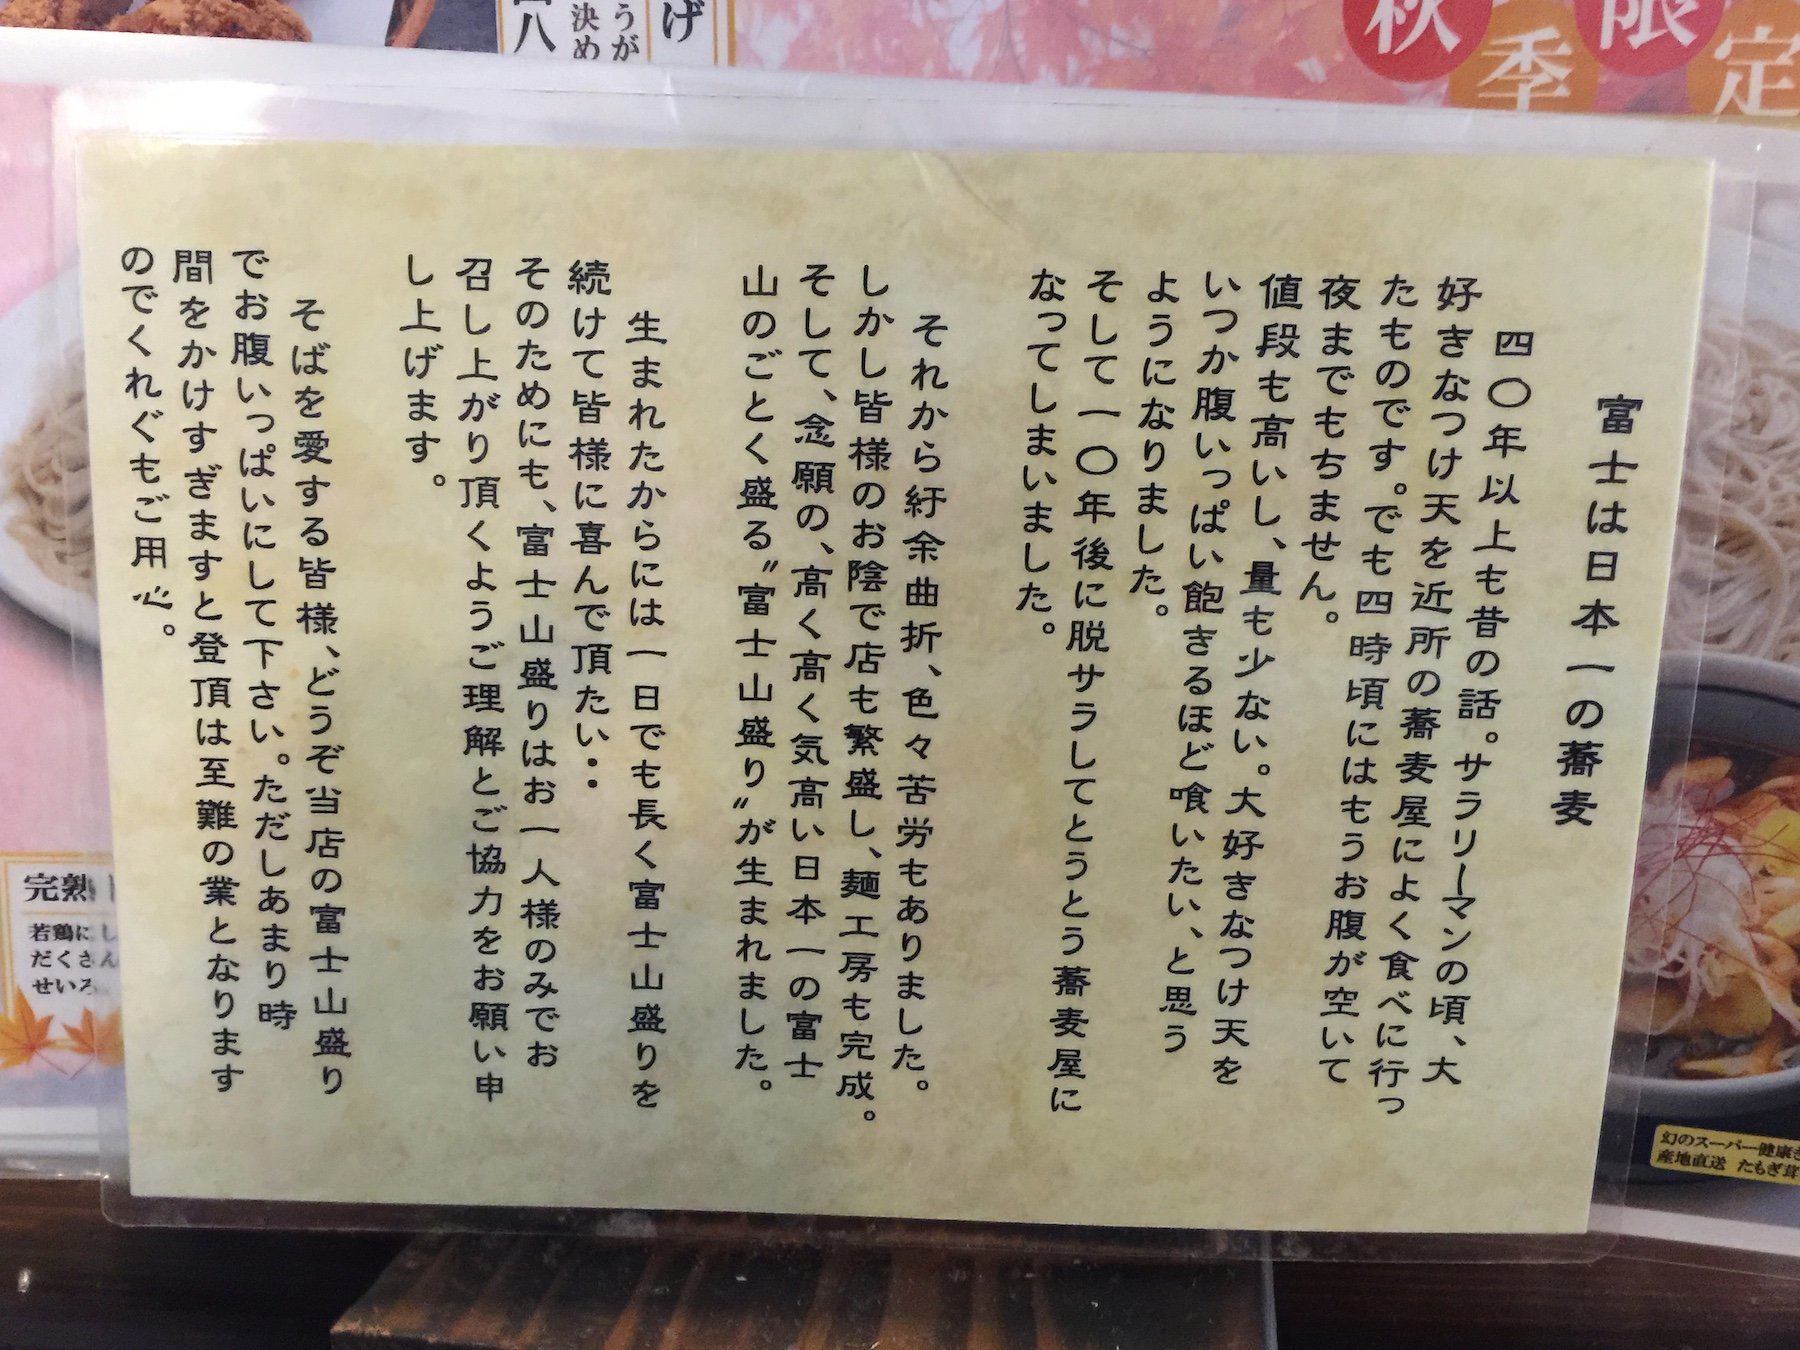 富士は日本一の蕎麦
四〇年以上も昔の話。サラリーマンの頃、大
好きなつけ天を近所の蕎麦屋によく食べに行っ
たものです。でも四時頃にはもうお腹が空いて
夜までもちません。
値段も高いし、量も少ない。大好きなつけ天を
いつか腹いっぱい飽きるほど喰いたい、と思う
ようになりました。
そして一〇年後に脱サラしてとうとう蕎麦屋に
なってしまいました。
それから紆余曲折、色々苦労もありました。
しかし皆様のお陰で店も繁盛し、麺工房も完成。
そして、念願の、高く高く気高い日本一の富士
山のごとく盛る〝富士山盛り〟が生まれました。
生まれたからには一日でも長く富士山盛りを
続けて皆様に喜んで頂たい・・
そのためにも、富士山盛りはお一人様のみでお
召し上がり頂くようご理解とご協力をお願い申
し上げます。
そばを愛する皆様、どうぞ当店の富士山盛り
でお腹いっぱいにして下さい。ただしあまり時
間をかけすぎますと登頂は至難の業となります
のでくれぐもご用心。
秋季限定
げ
うが
決め
八
完熟
若鶏にし
だくさん
せいろ
幻のスーパー健康き
産地直送 たもぎ茸